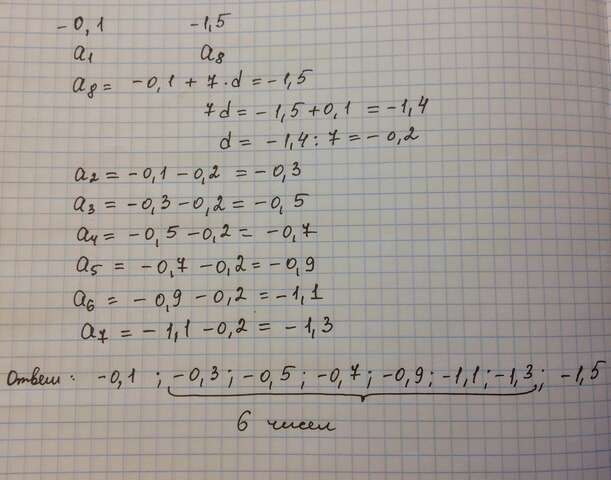 -0,1 -1,5
a1 a8
a8 = -0,1 + 7 · d = -1,5
7d = -1,5 + 0,1 = -1,4
d = -1,4 : 7 = -0,2
a2 = -0,1 - 0,2 = -0,3
a3 = -0,3 - 0,2 = -0,5
a4 = -0,5 - 0,2 = -0,7
a5 = -0,7 - 0,2 = -0,9
a6 = -0,9 - 0,2 = -1,1
a7 = -1,1 - 0,2 = -1,3
Ответ: -0,1 ; -0,3 ; -0,5 ; -0,7 ; -0,9 ; -1,1 ; -1,3 ; -1,5
6 чисел